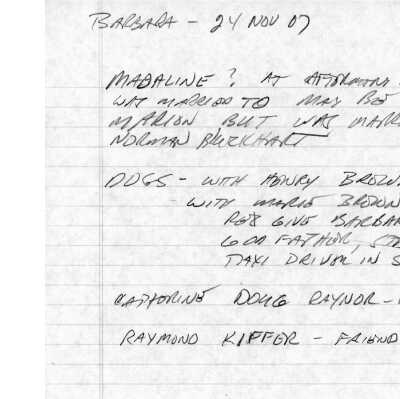 BARBARA - 24 NOV 07
MADALINE ? AT
WAS MARRIED TO MAY BE
MARION BUT WAS MARR
NORMAN BURKHART
DOGS - WITH HENRY BROWN
WITH MARIE BROWN
GIVE BARBAR
GOD FATHER,
TAXI DRIVER IN S
CATHORINE DOUG RAYNOR -
RAYMOND KIFFER - FRIEND